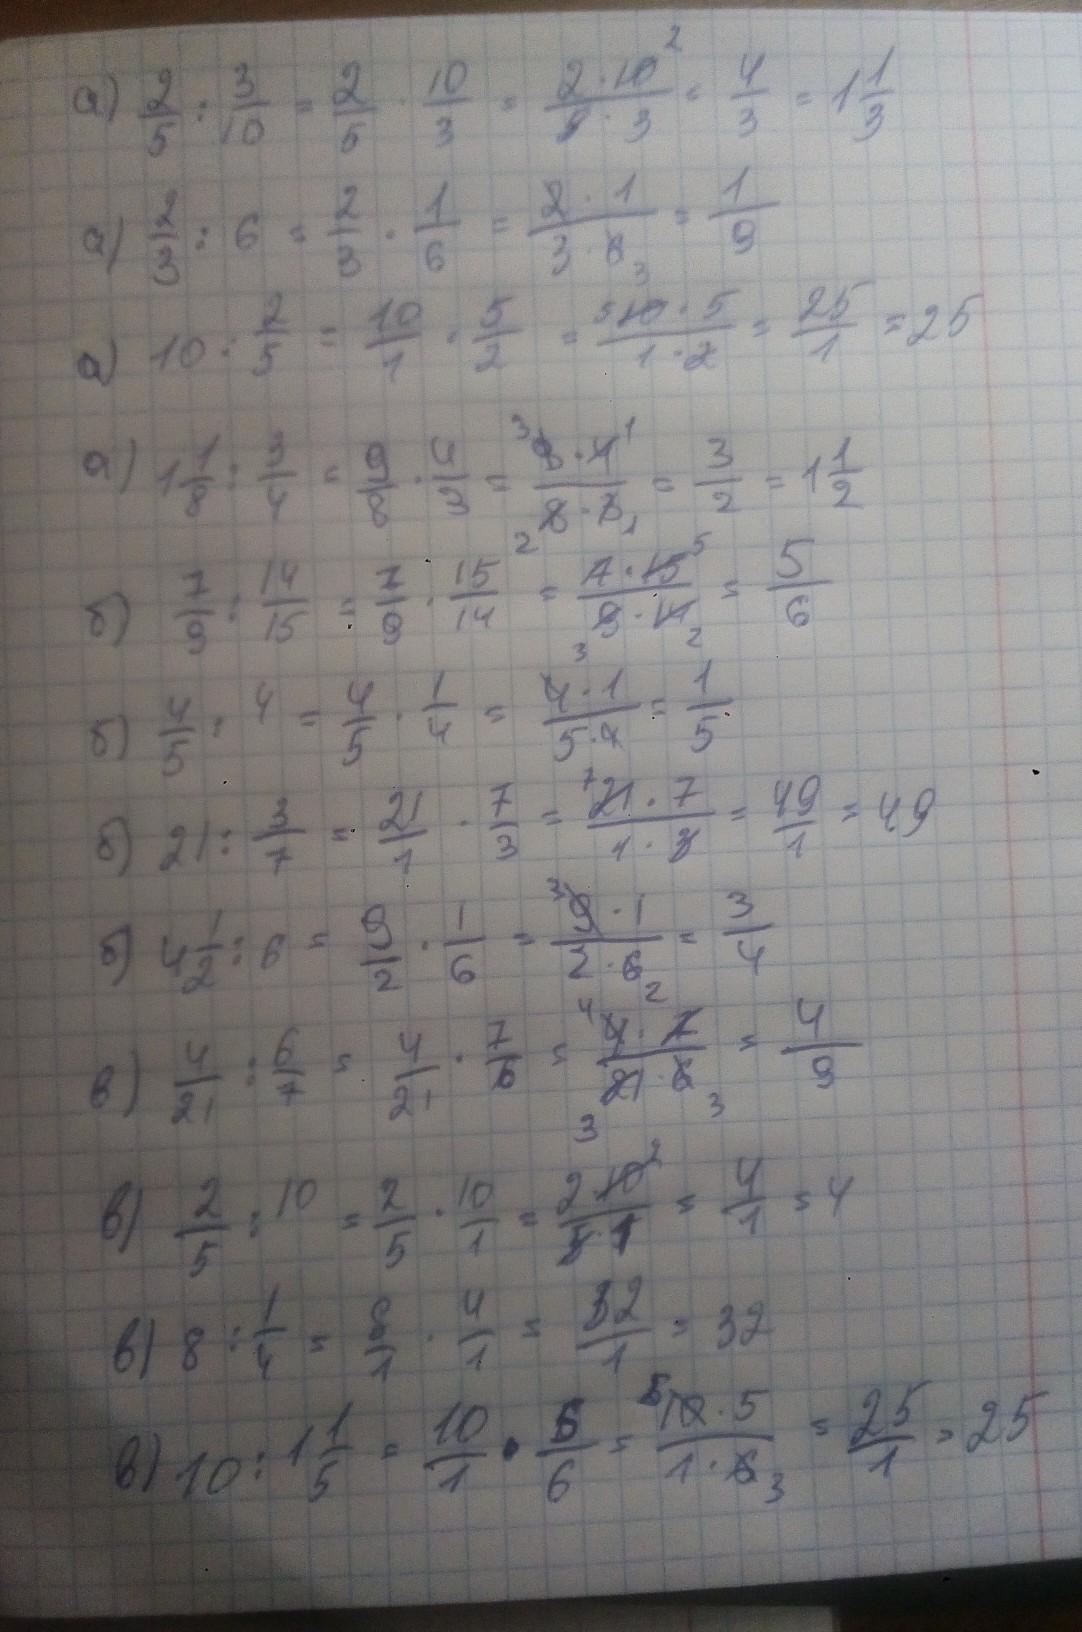 а) 2/5 : 3/10 = 2/5 · 10/3 = 2·10²/5·3 = 4/3 = 1 1/3
а) 2/3 : 6 = 2/3 · 1/6 = 2·1/3·6₃ = 1/9
а) 10 : 2/5 = 10/1 · 5/2 = ⁵10·5/1·2 = 25/1 = 25
а) 1 1/8 : 3/4 = 9/8 · 4/3 = ³9·4¹/₂8·3₁ = 3/2 = 1 1/2
б) 7/9 : 14/15 = 7/9 · 15/14 = 7·15⁵/₃9·14₂ = 5/6
б) 4/5 : 4 = 4/5 · 1/4 = 4·1/5·4 = 1/5
б) 21 : 3/7 = 21/1 · 7/3 = ⁷21·7/1·3 = 49/1 = 49
б) 4 1/2 : 6 = 9/2 · 1/6 = ³9·1/2·6₂ = 3/4
в) 4/21 : 6/7 = 4/21 · 7/6 = ⁴4·7/₃21·6₃ = 4/9
в) 2/5 : 10 = 2/5 · 10/1 = 2·10²/5·1 = 4/1 = 4
в) 8 : 1/4 = 8/1 · 4/1 = 32/1 = 32
в) 10 : 1 1/5 = 10/1 · 5/6 = ⁵10·5/1·6₃ = 25/1 = 25